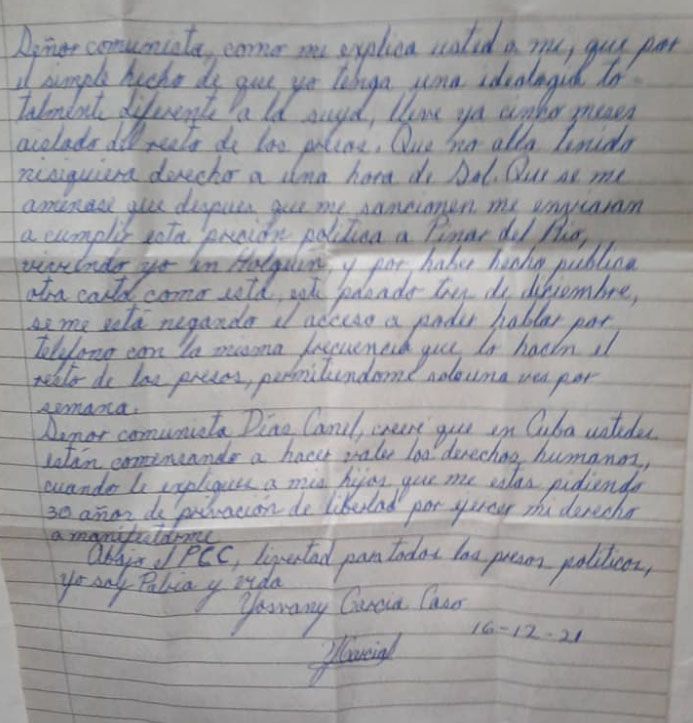 Señor comunista, como me explica usted a mi, que por
el simple hecho de que yo tenga una idealogia to
talmente diferente a la suya, lleve ya cinco meses
aislado del resto de los presos. Que no alla tenido
nisiquiera derecho a una hora de Sol. Que se me
aminase que despues que me sancionen me enviaran
a cumplir esta preción politica a Pinar del Rio,
viviendo yo en Holguin, y por haber hecho publica
otra carta como esta, este pasado tres de diciembre,
se me está negando el acceso a poder hablar por
telefono con la misma frecuencia que lo hacen el
resto de los presos, permitiendome solo una ves por
semana.
Señor comunista Días Canel, creeré que en Cuba ustedes
están comensando a hacer valer los derechos humanos,
cuando le expliques a mis hijos que me estas pidiendo
30 años de privación de libertad por ejercer mi derecho
a manifestarme
Abajo el PCC, livertad para todos los presos politicos,
yo soy Patria y vida
Yosvany Garcia Caso
16-12-21
YGarcia